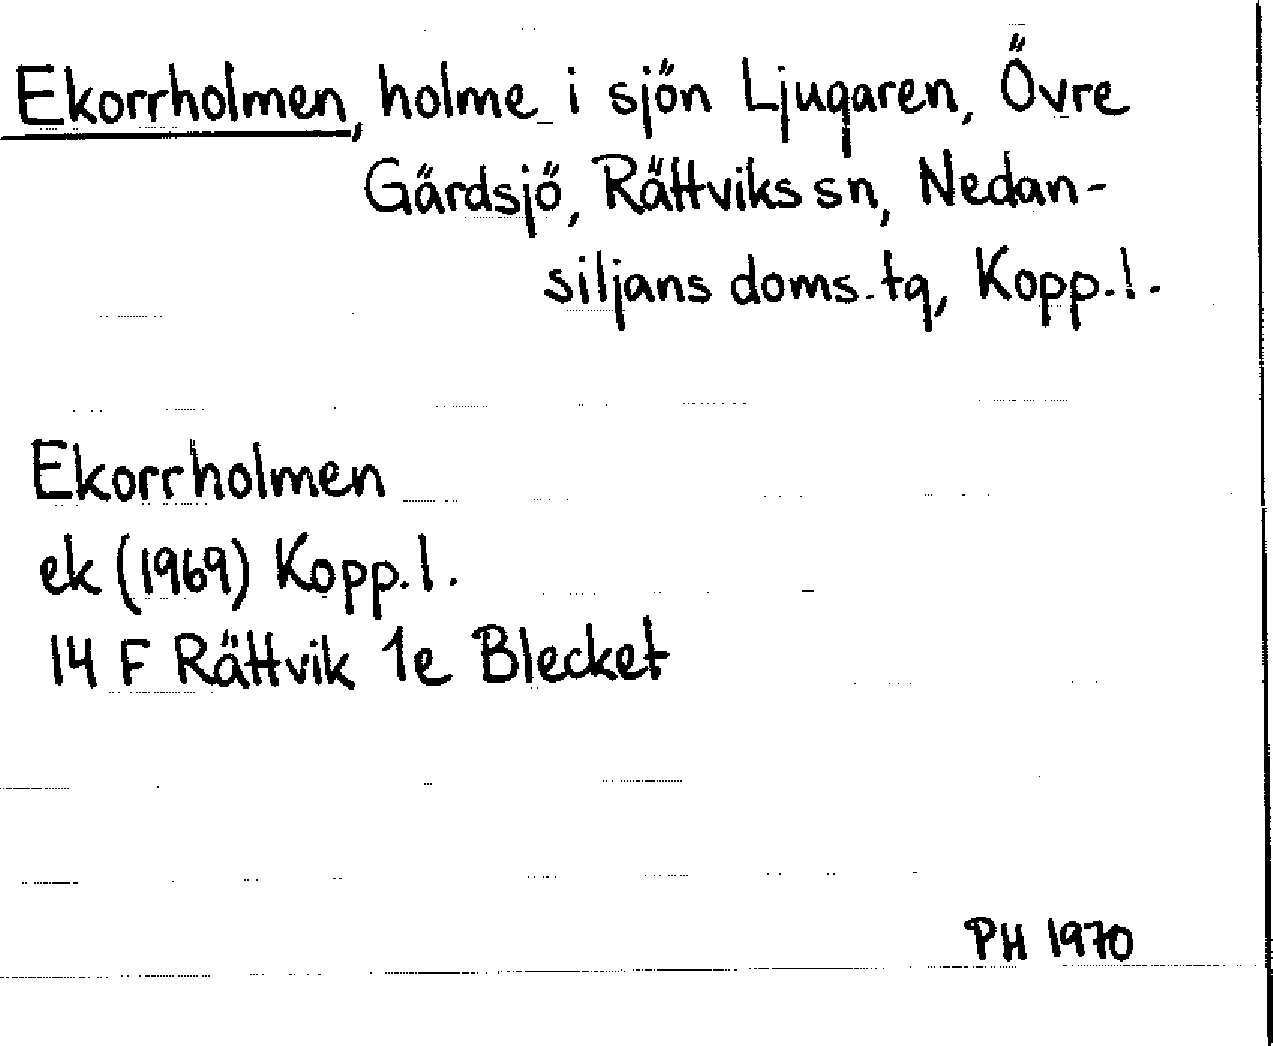 Ekorrholmen, holme i sjön Ljugaren, Övre
Gärdsjö, Rättviks sn, Nedan-
siljans doms. tg, Kopp. l.
Ekorrholmen
ek (1969) Kopp. l.
14 F Rättvik 1e Blecket
PH 1970